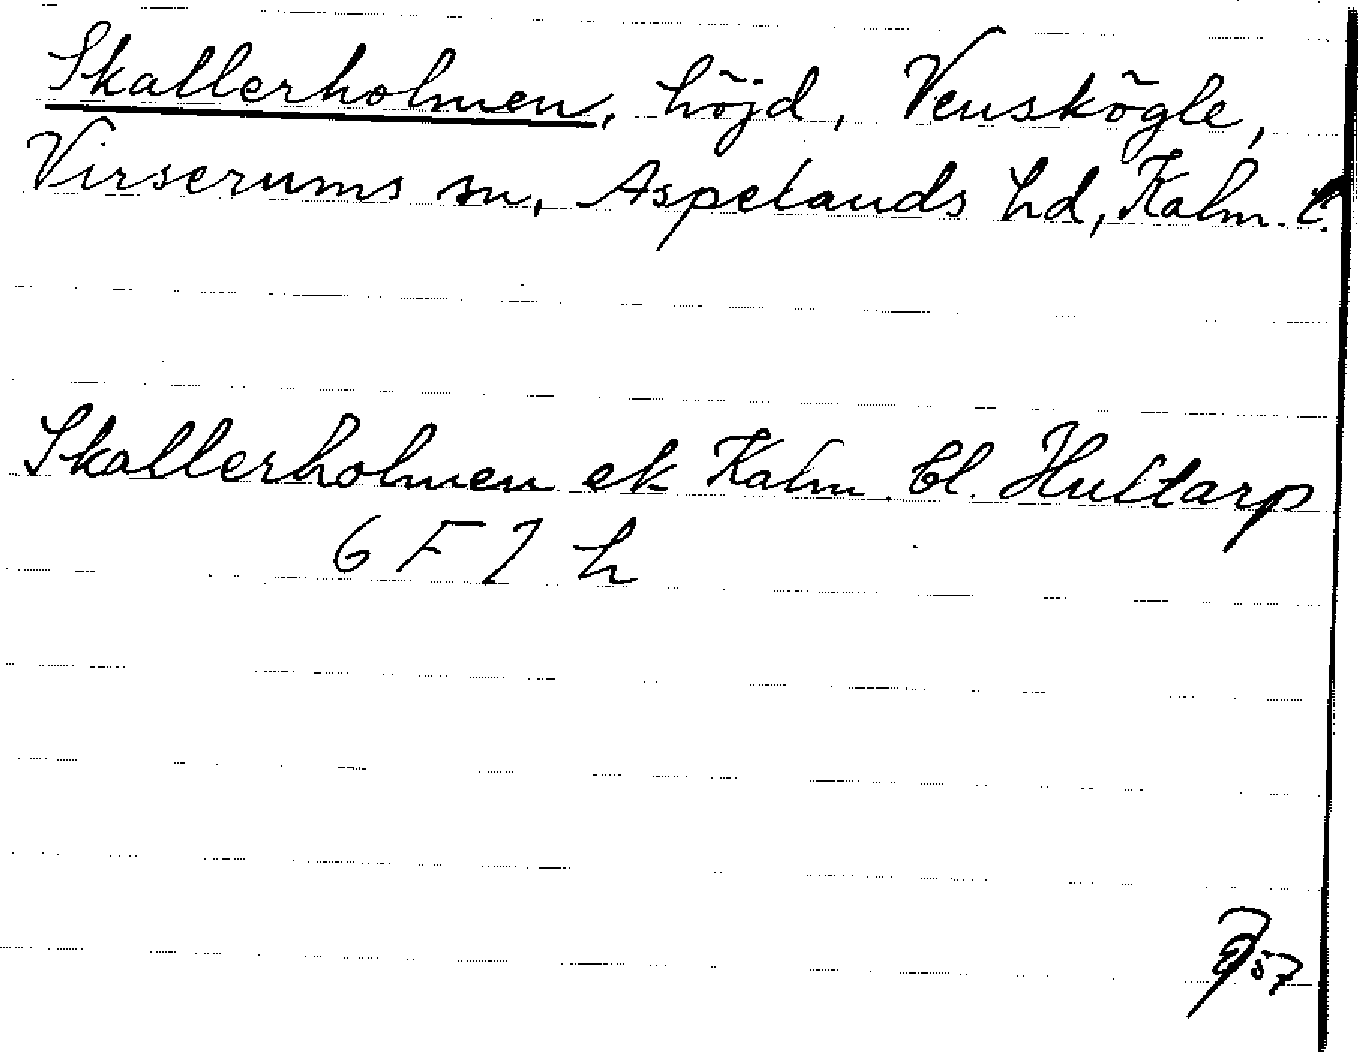 Skallerholmen, höjd, Venskögle,
Virserums sn, Aspelands hd, Kalm. l.
Skallerholmen ek Kalm. bl. Hultarp
6 F 7 h
57